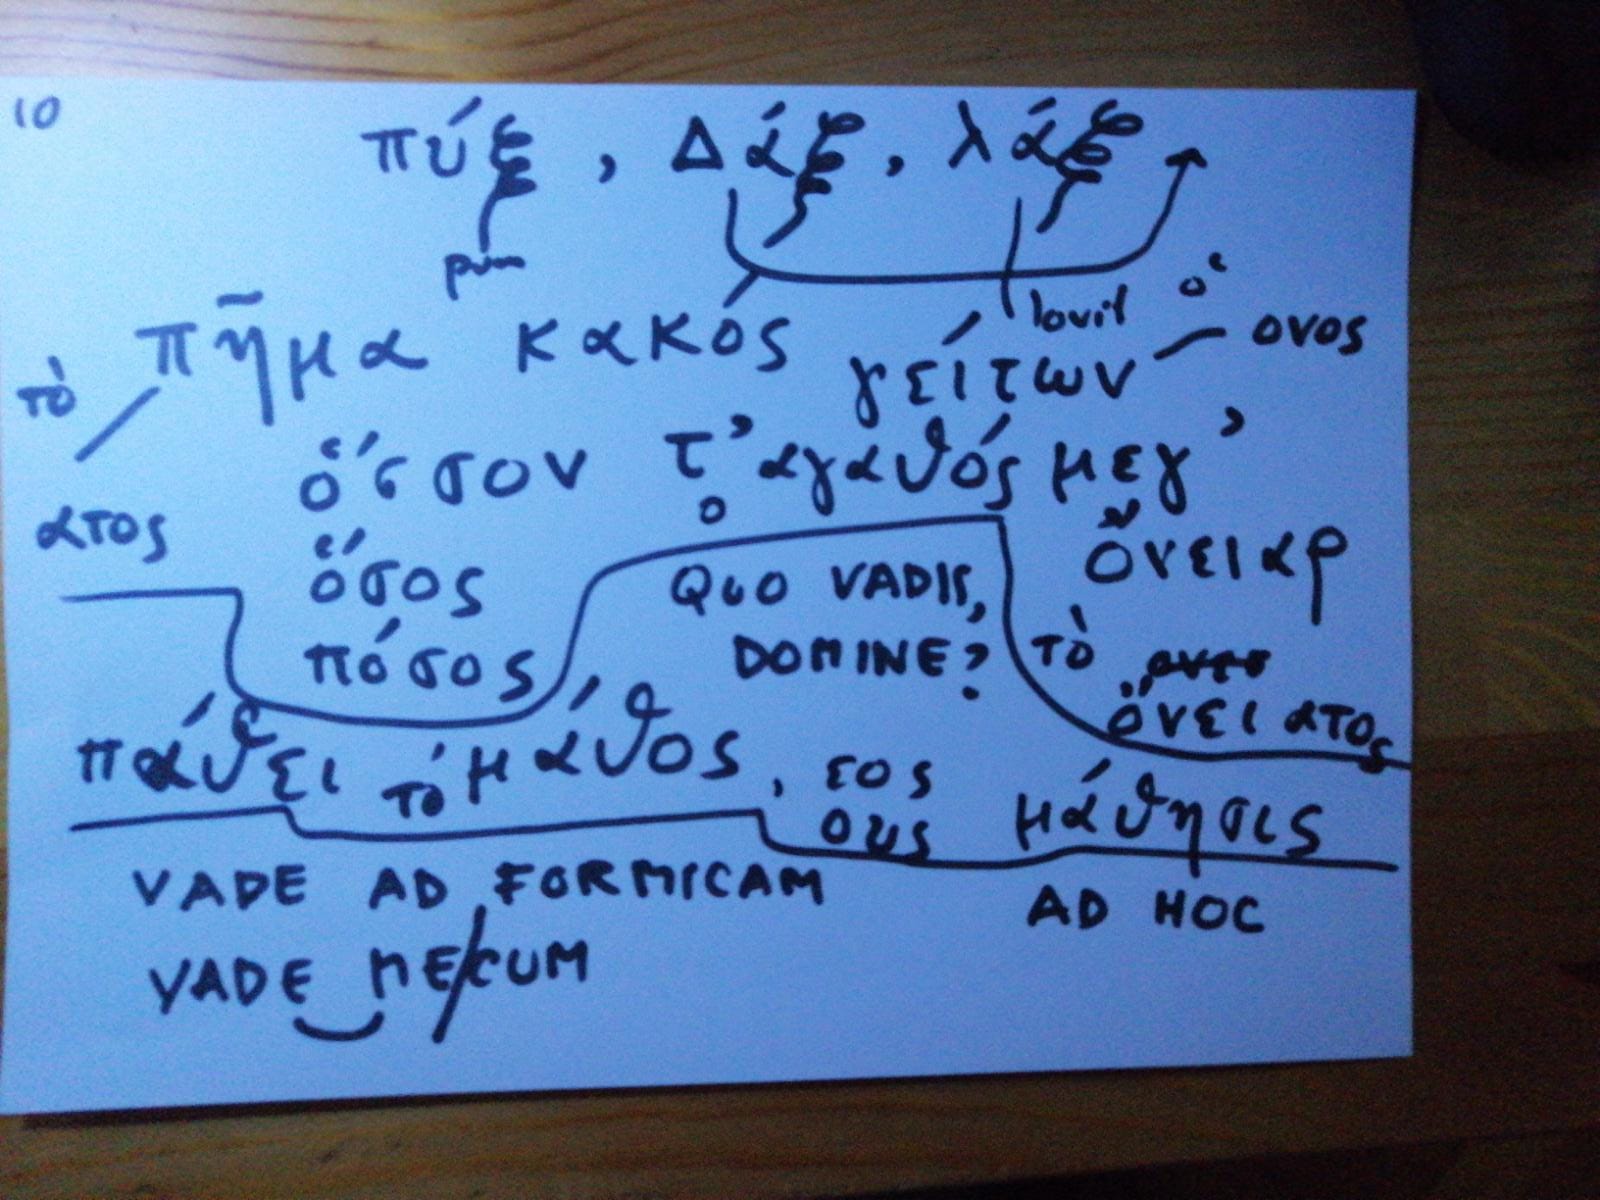 10
πύξ, Δάξ, λάξ
πῆμα κακός γείτων — ονος
τὸ
ὁ
ατος
ὅσσον τ' αγαθός μεγ'
ὅσος
πόσος
ὄνειαρ
QUO VADIS,
DOMINE?
τὸ
ὄνειατος
πάθει τὸ μάθος, εος
ους
μάθησις
VADE AD FORMICAM
AD HOC
VADE MECUM